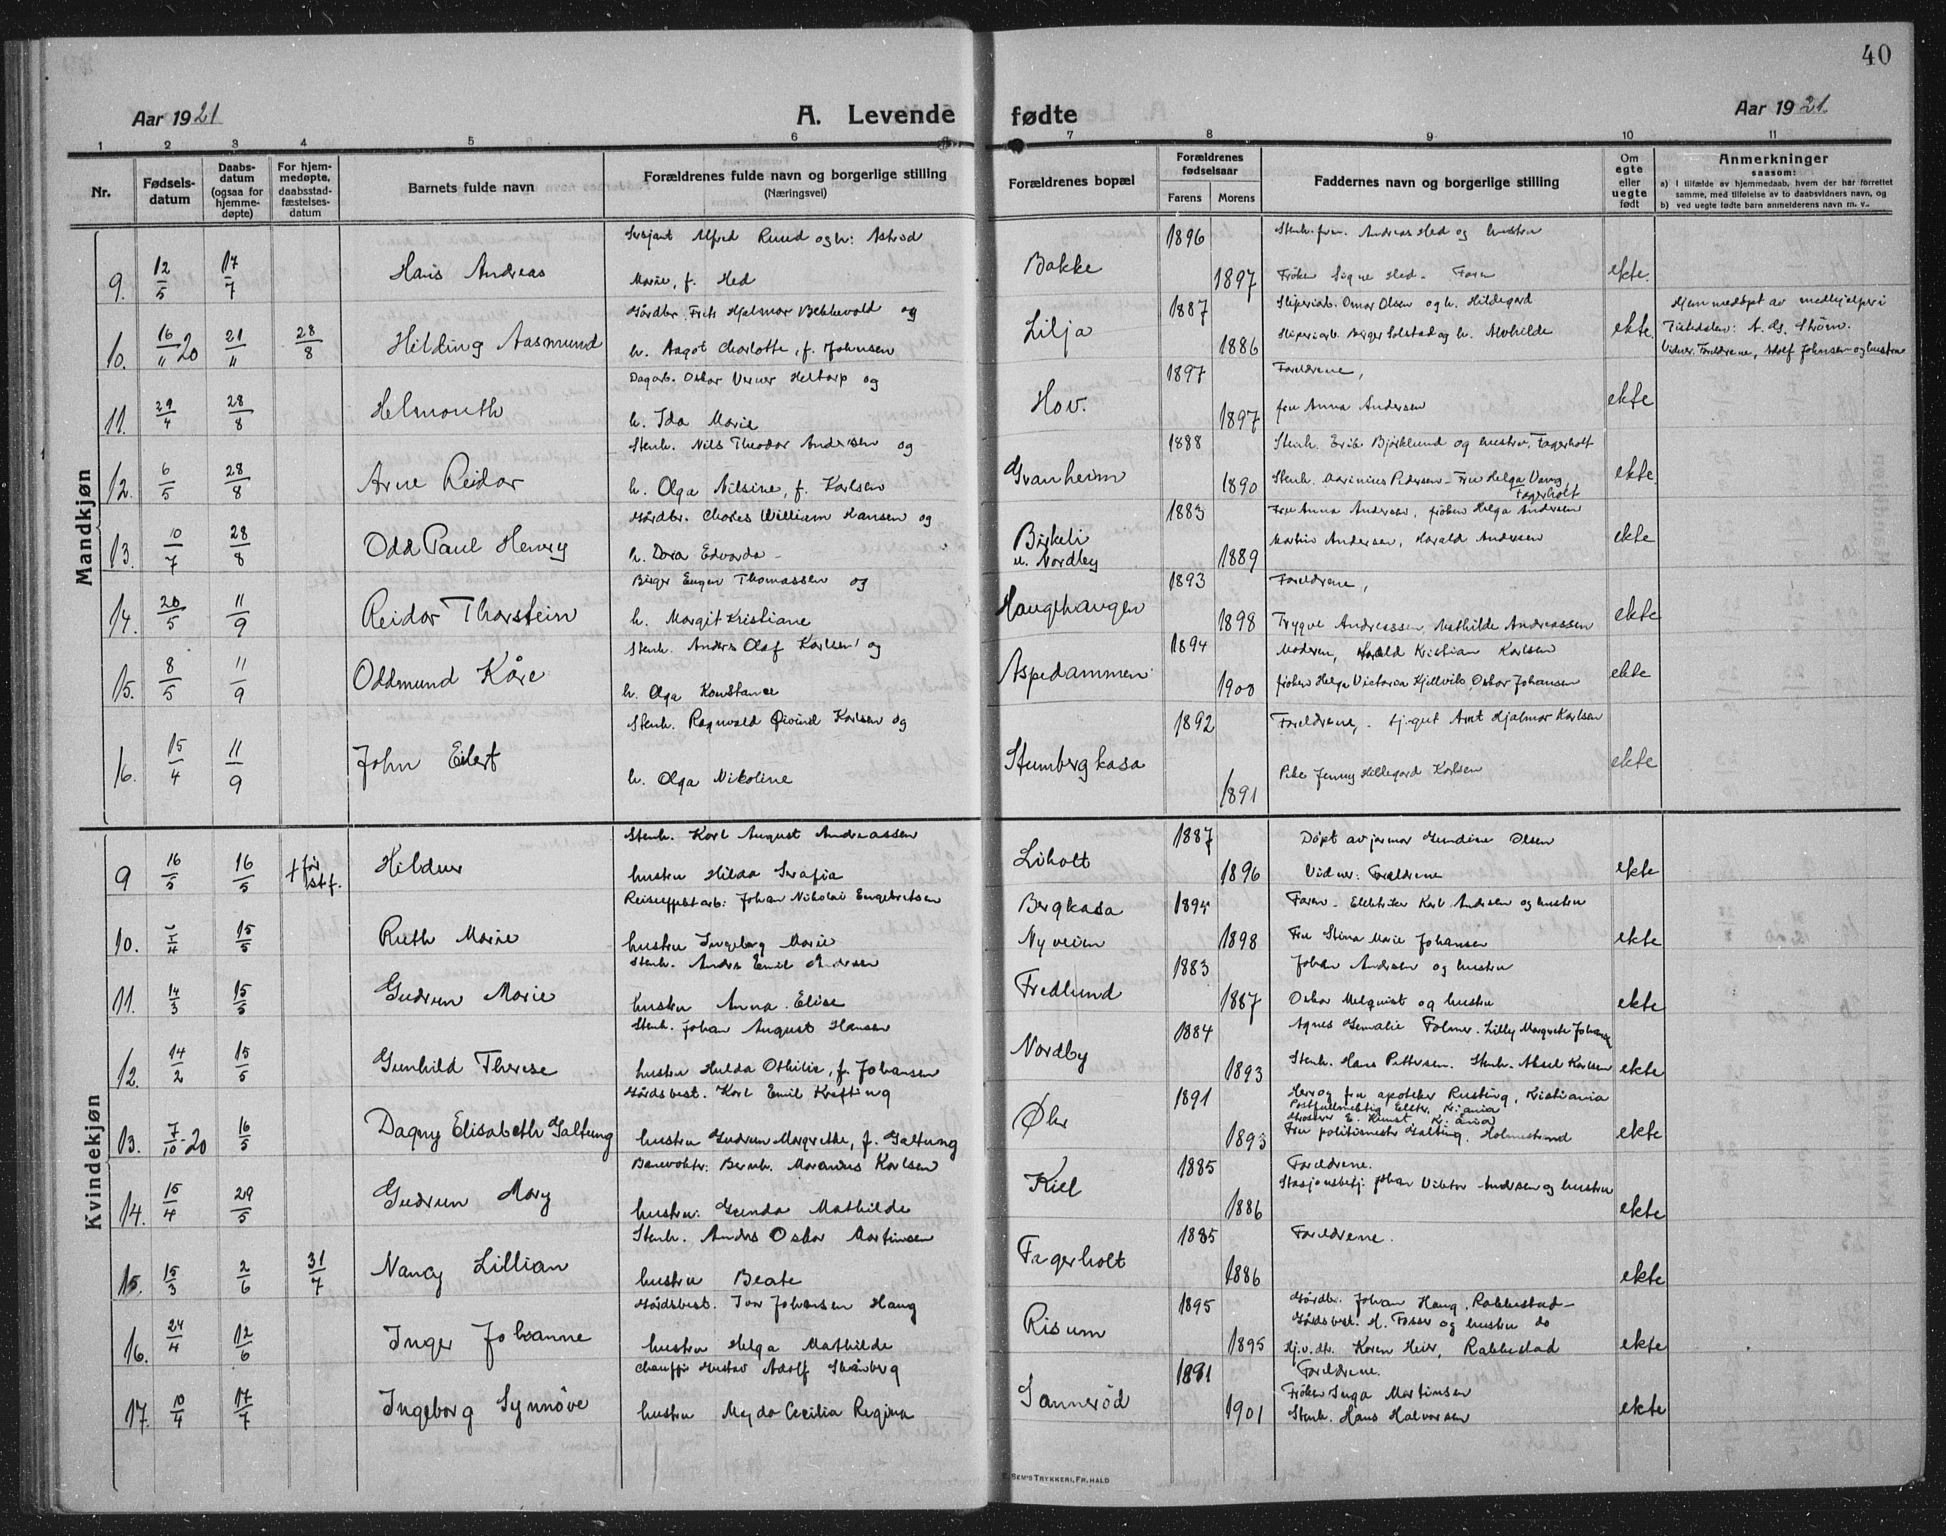 40
Aar 1921
A. Levende fødte
Aar 1921
1 2 3 4 5 6 7 8 9 10 11
Nr.
Fødsels-
datum
Daabs-
datum
(ogsaa for
hjemme-
døpte)
For hjem-
medøpte,
daabsstad-
fæstelses-
datum
Barnets fulde navn
Forældrenes fulde navn og borgerlige stilling
(Næringsvei)
Forældrenes bopæl
Forældrenes
fødselsaar
Farens Morens
Faddernes navn og borgerlige stilling
Om
egte
eller
uegte
født
Anmerkninger
saasom:
a) I tilfælde av hjemmedaab, hvem der har forrettet
samme, med tilføielse av to daabsvidners navn, og
b) ved uegte fødte barn anmelderens navn m. v.
Mandkjøn
Sersjant Alfred Ruud og h: Astrid 1896 Stenh. Andreas Hed og hustru
9. 12/5 17/7 Hans Andreas Marie, f. Hed Bakke 1897 Frøken Signe Hed - Faren ekte
Gårdbr. Frits Hjalmar Bekkevold og 1887 Sliperiarb. Omar Olsen og h. Hildegard Hjemmedøpt av medhjelper i
10. 16/11 20 21/11 28/8 Hilding Aasmund h. Aagot Charlotte, f. Johnsen Lilja 1886 Sliperiarb. Birger Solstad og h. Alvhilde ekte Tistedalen: A. Strøm.
Vidner: Foreldrene, Adolf Johnsen og hustru
Dagarb. Oskar Verner Heltorp og 1897 Foreldrene,
11. 29/4 28/8 Helmouth h. Ida Marie Hov. 1897 fru Anna Andersen ekte
Stenh. Nils Theodor Andersen og 1888 Stenh. Erik Bjørklund og hustru, Fagerholt
12. 6/5 28/8 Arne Reidar h. Olga Nilsine, f. Karlsen Granheim 1890 Stenh. Marinius Pedersen - Fru Helga Vang Fagerholt ekte
Gårdbr. Charles William Hansen og 1883 Fru Anna Andersen, frøken Helga Andersen
13. 10/7 28/8 Odd Paul Henry h. Dora Edvarda - Birkeli u. Nordby 1889 Martin Andersen, Harald Andersen ekte
Birger Eugen Thomassen og 1893 Foreldrene,
14. 20/5 11/9 Reidar Thorstein h. Margit Kristiane Haugehaugen 1898 Trygve Andreassen, Mathilde Andreassen ekte
Stenh. Anders Olaf Karlsen og 1894 Moderen, Harald Kristian Karlsen
15. 8/5 11/9 Oddmund Kåre h. Olga Konstance Aspedammen 1900 frøken Helga Victoria Kjellvik, Oskar Johansen ekte
Stenh. Ragnvald Øivind Karlsen og 1892 Foreldrene, - gut Arnt Hjalmar Karlsen
16. 15/4 11/9 John Eilert h. Olga Nikoline Stumbergkasa 1891 Pike Jenny Hillegard Karlsen ekte
Kvindekjøn
Stenh. Karl August Andreassen 1887 Døpt av jormor Gundine Olsen
9 16/5 16/5 † før st.f. Hildur hustru Hilda Serafia Liholt 1896 Vidner: Foreldrene ekte
Johan Nikolai Engebretsen Bergkasa 1894 Faren - Elektriker Karl Andersen og hustru
10. 15/5 Ruth Marie hustru Ingeborg Marie Nyveien 1898 Fru Stina Marie Johansen ekte
Stenh. Anders Emil Andersen 1883 Johan Andersen og hustru
11. 14/3 15/5 Gudrun Marie hustru Anna Elise Fredlund 1887 Oskar Melquist og hustru ekte
Stenh. Johan August Hansen 1884 Agnes Folmer. Lilly Margrete Johansen
12. 14/2 15/5 Gunhild Therese hustru Hulda Othilie, f. Johansen Nordby 1893 Stenh. Hans Pettersen. Stenh. Aksel Karlsen ekte
Gårdsbest. Karl Emil Krefting 1891 Herr og fru apoteker Rusting, Kristiania
Postfullmektig K: ania
E. K: ania
13. 7/10 20 16/5 Dagny Elisabeth Galtung hustru Gudrun Margrethe, f. Galtung Øhr 1893 Fru politimester Galtung, Holmestrand ekte
Banevoktr. Bernh. Maranius Karlsen 1885 Foreldrene.
Stasjonsbetj. Johan Viktor Andersen og hustru
14. 15/4 29/5 Gudrun Mary hustru: Gunda Mathilde Kiel 1886 ekte
Stenh. Anders Oskar Martinsen 1885 Foreldrene.
15. 15/3 2/6 31/7 Nancy Lillian hustru Beate Fagerholt 1886 ekte
Gårdsbest. Ivar Johansen Haug 1895 Gårdbr. Johan Haug, Rakkestad -
Gårdsbest. H. Fosser og hustru do
16. 24/4 12/6 Inger Johanne hustru Helga Mathilde Risum 1895 Gj.v.dtr. Karen Heier, Rakkestad ekte
Chauffør Gustav Adolf Skånberg 1891 Foreldrene.
Frøken Inga Martinsen
17. 10/4 17/7 Ingeborg Synnøve hustru Magda Cecilia Regina Sannerød 1901 Stenh. Hans Halvorsen ekte
E. SEM'S TRYKKERI, FR.HALD